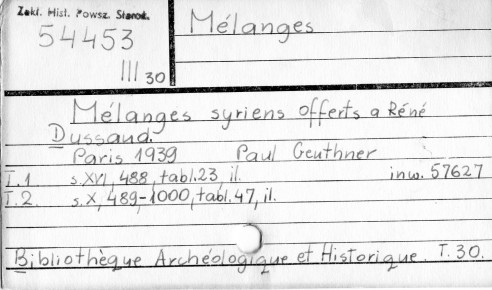 Zakł. Hist. Powsz. Staroż.
54453
III 30
Mélanges
Mélanges syriens offerts a Réné
Dussaud.
Paris 1939 Paul Geuthner
T.1 s.XVI, 488, tabl.23, il. inw. 57627
T.2. s.X, 489-1000, tabl.47, il.
Bibliothèque Archéologique et Historique. T.30.